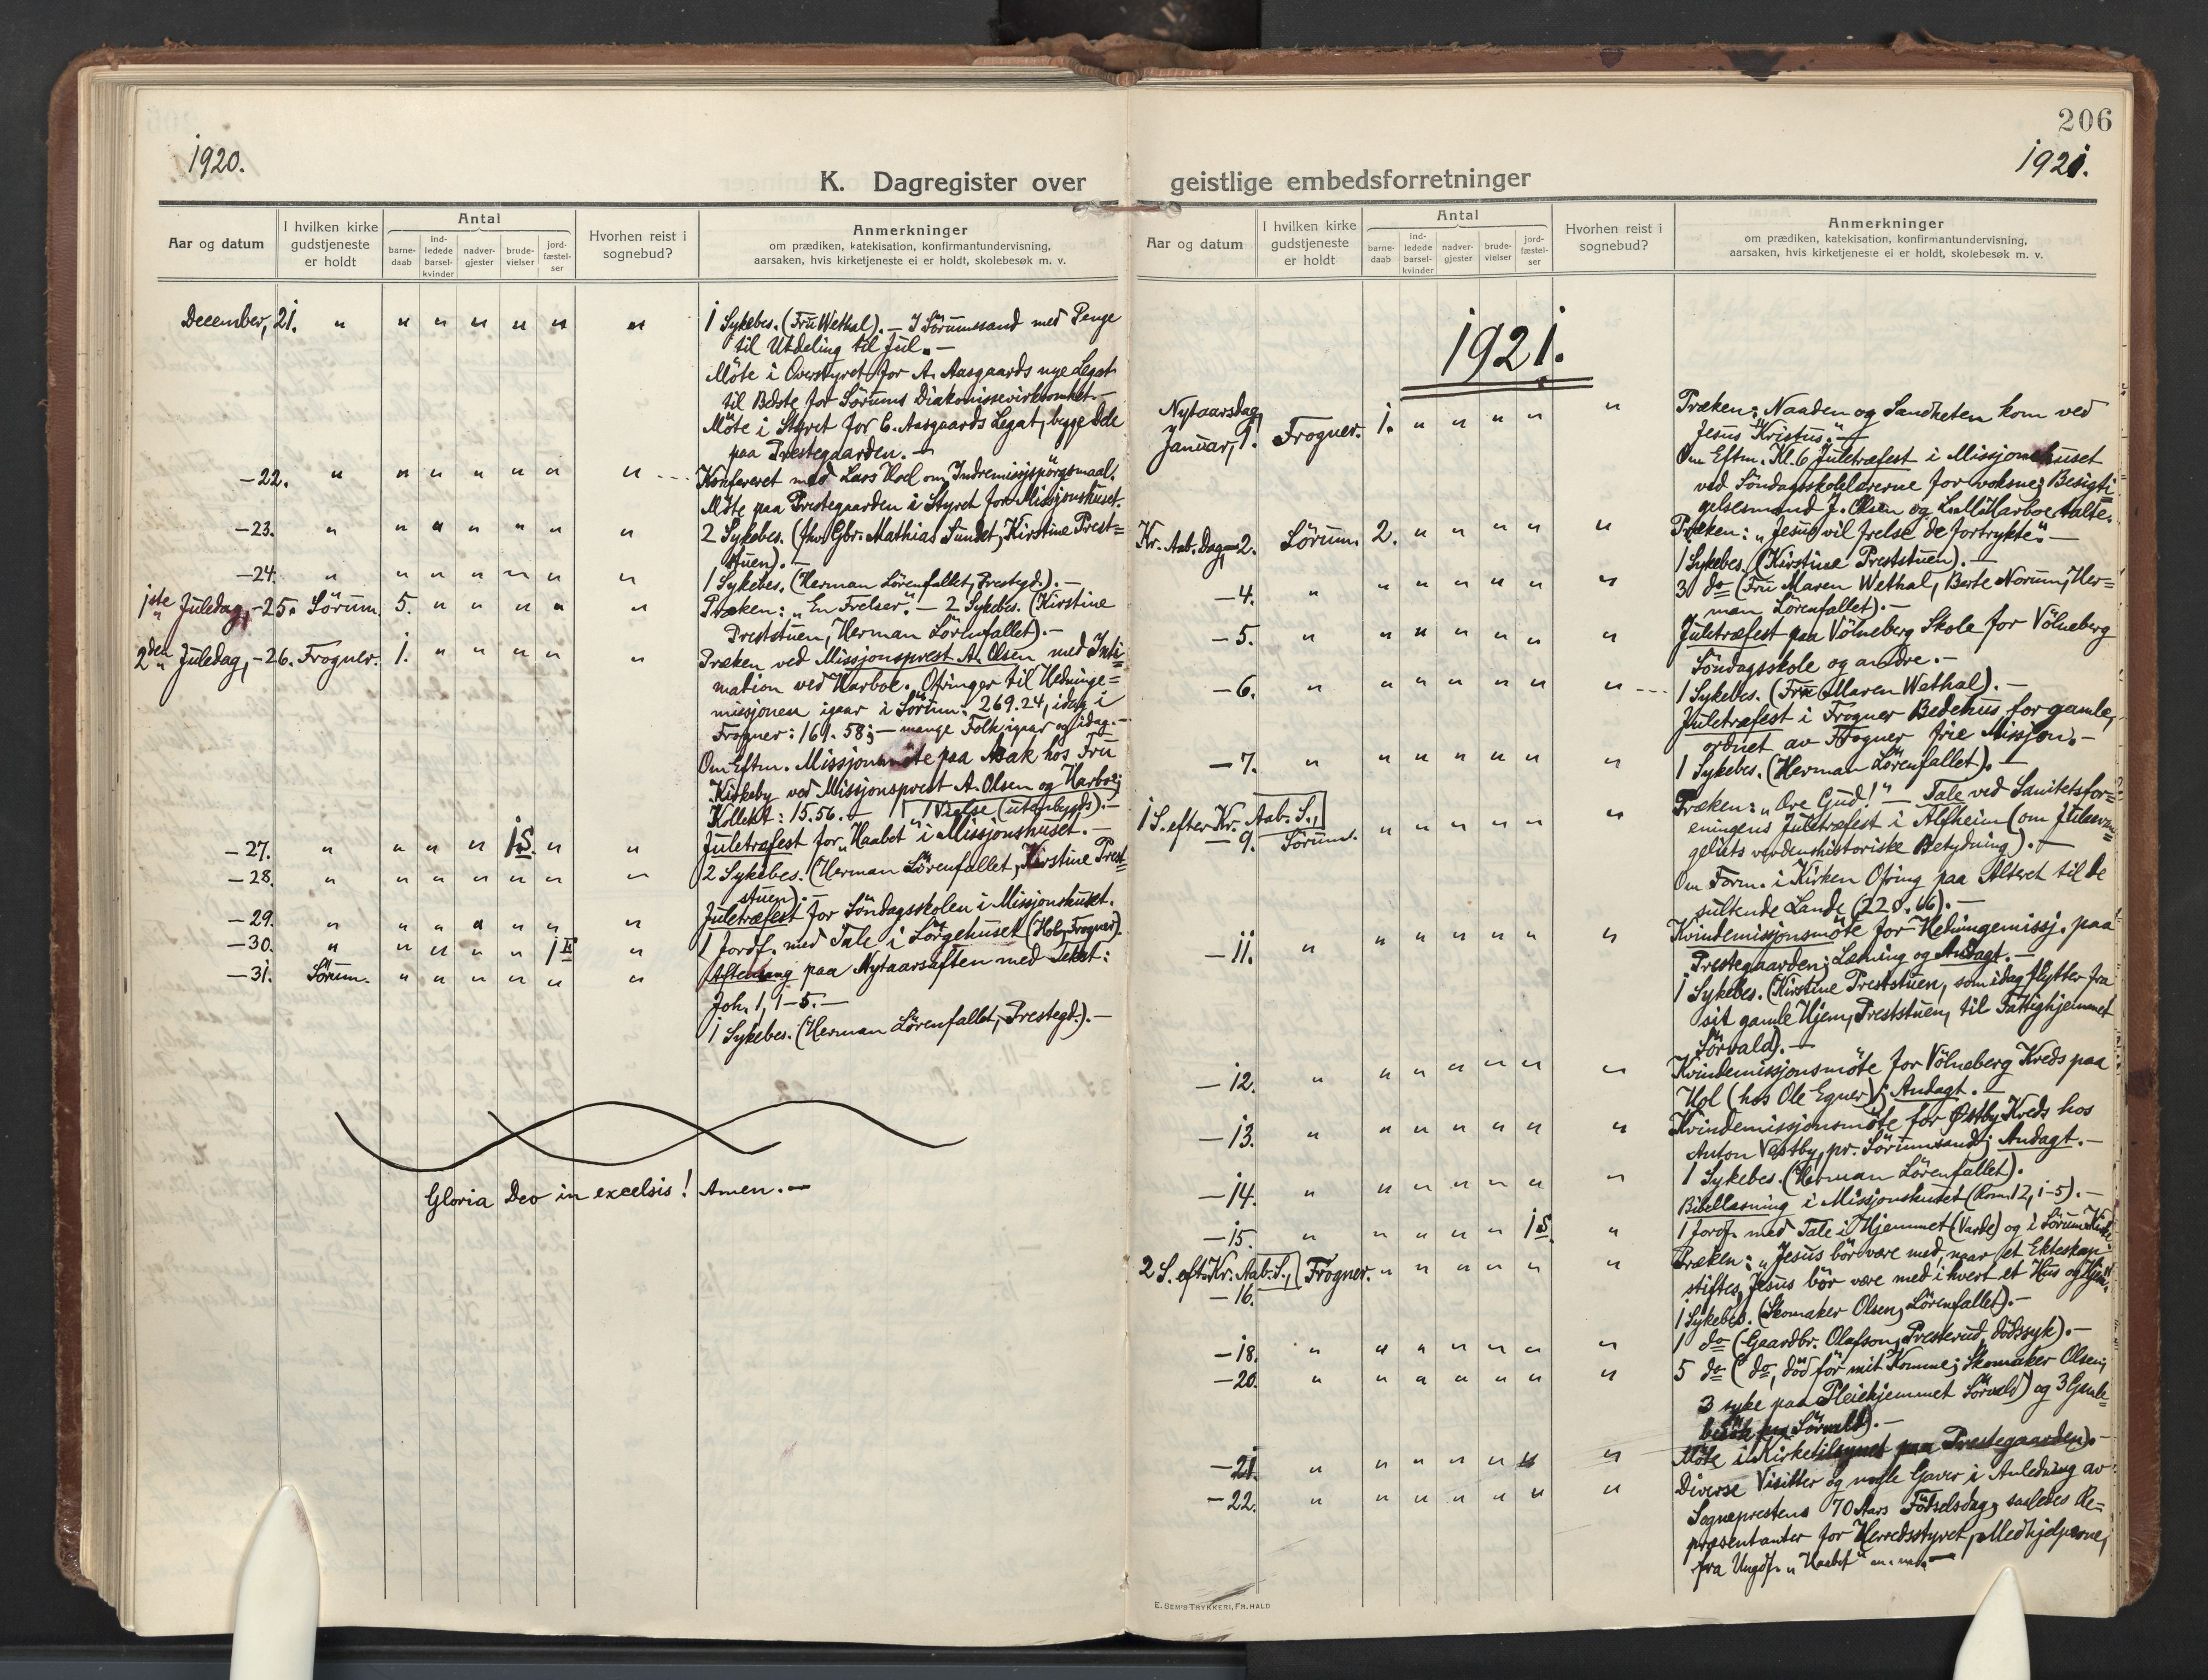 1920.
K. Dagregister over
Aar og datum
I hvilken kirke
gudstjeneste
er holdt
Antal
barne-
daab
ind-
ledede
barsel-
kvinder
nadver-
gjester
brude-
vielser
jord-
fæstel-
ser
Hvorhen reist i
sognebud?
Anmerkninger
om prædiken, katekisation, konfirmantundervisning,
aarsaken, hvis kirketjeneste ei er holdt, skolebesøk m. v.
December, 21. " " " " " " " 1 Sykebes. (Fru Wethal). — I Sörumsand med Penge
til Utdeling til Jul. —
Möte i Overstyret for A. Aasgaards nye Legat
til Bedste for Sörums Diakonissevirksomhet. —
Möte i Styret for C. Aasgaards Legat, begge Dele
paa Prestegaarden. —
—22. " " " " " " " Konfereret med Lars Hol om Indremissjspörgsmaal.
Möte paa Prestegaarden i Styret for Missjonshuset.
—23. " " " " " " " 2 Sykebes. (fhv. Gbr. Mathias Sundet, Kirstine Prest=
stuen). —
—24. " " " " " " " 1 Sykebes. (Herman Lörenfallet, Prestegd.). —
1ste Juledag, —25. Sörum. 5. " " " " " Præken: „En Frelser." — 2 Sykebes. (Kirstine
Preststuen, Herman Lörenfallet). —
2den Juledag, —26. Frogner. 1. " " " " " Præken ved Missjonsprest A. Olsen med Inti=
mation ved Harboe. Ofringer til Hedninge=
missjonen igaar i Sörum: 269.24, idag i
Frogner: 161.58; — mange Folk igaar og idag. —
Om Eftm. Missjonsmöte paa Asak hos Fru
Kirkeby ved Missjonsprest A. Olsen og Harboe;
Kollekt: 15.56. — 1 Vielse (utenbygds). —
—27. " " " " 1 S. " " Juletræfest for „Haabet" i Missjonshuset. —
—28. " " " " " " " 2 Sykebes. (Herman Lörenfallet, Kirstine Prest=
stuen). —
—29. " " " " " " " Juletræfest for Söndagsskolen i Missjonshuset.
—30. " " " " " 1 F " 1 Jordf. med Tale i Sörgehuset (Hol, Frogner).
—31. Sörum. " " " " " " Aftensang paa Nytaarsaften med Tekst:
Joh. 1, 1—5. —
1 Sykebes. (Herman Lörenfallet, Prestegd.). —
Gloria Deo in excelsis! Amen. —
206
1921.
geistlige embedsforretninger
Aar og datum
I hvilken kirke
gudstjeneste
er holdt
Antal
barne-
daab
ind-
ledede
barsel-
kvinder
nadver-
gjester
brude-
vielser
jord-
fæstel-
ser
Hvorhen reist i
sognebud?
Anmerkninger
om prædiken, katekisation, konfirmantundervisning,
aarsaken, hvis kirketjeneste ei er holdt, skolebesøk m. v.
1921.
Nytaarsdag,
Januar, 1. Frogner. 1. " " " " " Præken: Naaden og Sandheten kom ved
Jesus Kristus." —
Om Eftm. Kl. 6 Juletræfest i Missjonshuset
ved Söndagsskolelærerne for voksne; Besigti=
gelsesmand J. Olsen og Harboe talte.
Kr. Aab. Dag, —2. Sörum. 2. " " " " " Præken: „Jesus vil frelse de fortrykte." —
1 Sykebes. (Kirstine Preststuen). —
—4. " " " " " " " 3 do (Fru Maren Wethal, Berte Norum, Her=
man Lörenfallet). —
—5. " " " " " " " Juletræfest paa Völneberg Skole for Völneberg
Söndagsskole og andre. —
—6. " " " " " " " 1 Sykebes. (Fru Maren Wethal). —
Juletræfest i Frogner Bedehus for gamle,
ordnet av Frogner frie Missjon. —
—7. " " " " " " " 1 Sykebes. (Herman Lörenfallet). —
1 S. efter Kr. Aab. S.,
—9. Sörum. " " " " " " Præken: „Ære Gud!" — Tale ved Sanitetsfor=
eningens Juletræfest i Alfheim (om Juleevan=
geliets verdenshistoriske Betydning). —
Om Form. i Kirken Ofring paa Alteret til de
sultende Lande (220.66). —
—11. " " " " " " " Kvindemissjonsmöte for Hedningemissj. paa
Prestegaarden; Læsning og Andagt. —
1 Sykebes. (Kirstine Preststuen, som idag flytter fra
sit gamle Hjem, Preststuen, til Fattighjemmet
Sörvald). —
—12. " " " " " " " Kvindemissjonsmöte for Völneberg Kreds paa
Hol (hos Ole Egner); Andagt. —
—13. " " " " " " " Kvindemissjonsmöte for Østby Kreds hos
Anton Vestby, pr. Sörumsand; Andagt. —
1 Sykebes. (Herman Lörenfallet).
—14. " " " " " " " Bibellæsning i Missjonshuset (Rom. 12, 1—5). —
—15. " " " " " 1 S. " 1 Jordf. med Tale i Hjemmet (Varde) og i Sörum Kirke.
2 S. eft. Kr. Aab. S.,
—16. Frogner. " " " " " " Præken: „Jesus bör være med, naar et Ekteskap
stiftes, Jesus bör være med i hvert et Hus og Hjem."
1 Sykebes. (Skomaker Olsen, Lörenfallet). —
—18. " " " " " " " 1 do (Gaardbr. Olafson, Presterud, dödssyk). —
—20. " " " " " " " 5 do (do, död för mit Komme; Skomaker Olsen;
3 syke paa Pleiehjemmet Sörvald) og 3 Gamle=
besök paa Sörvald). —
—21. " " " " " " " Möte i Kirketilsynet paa Prestegaarden. —
—22. " " " " " " " Diverse Visitter og nogle Gaver i Anledning av
Sogneprestens 70 Aars Födselsdag, saaledes Re=
præsentanter for Herredsstyret, Medhjelperne,
fra Ungdf. „Haabet"
E. SEM'S TRYKKERI, FR.HALD